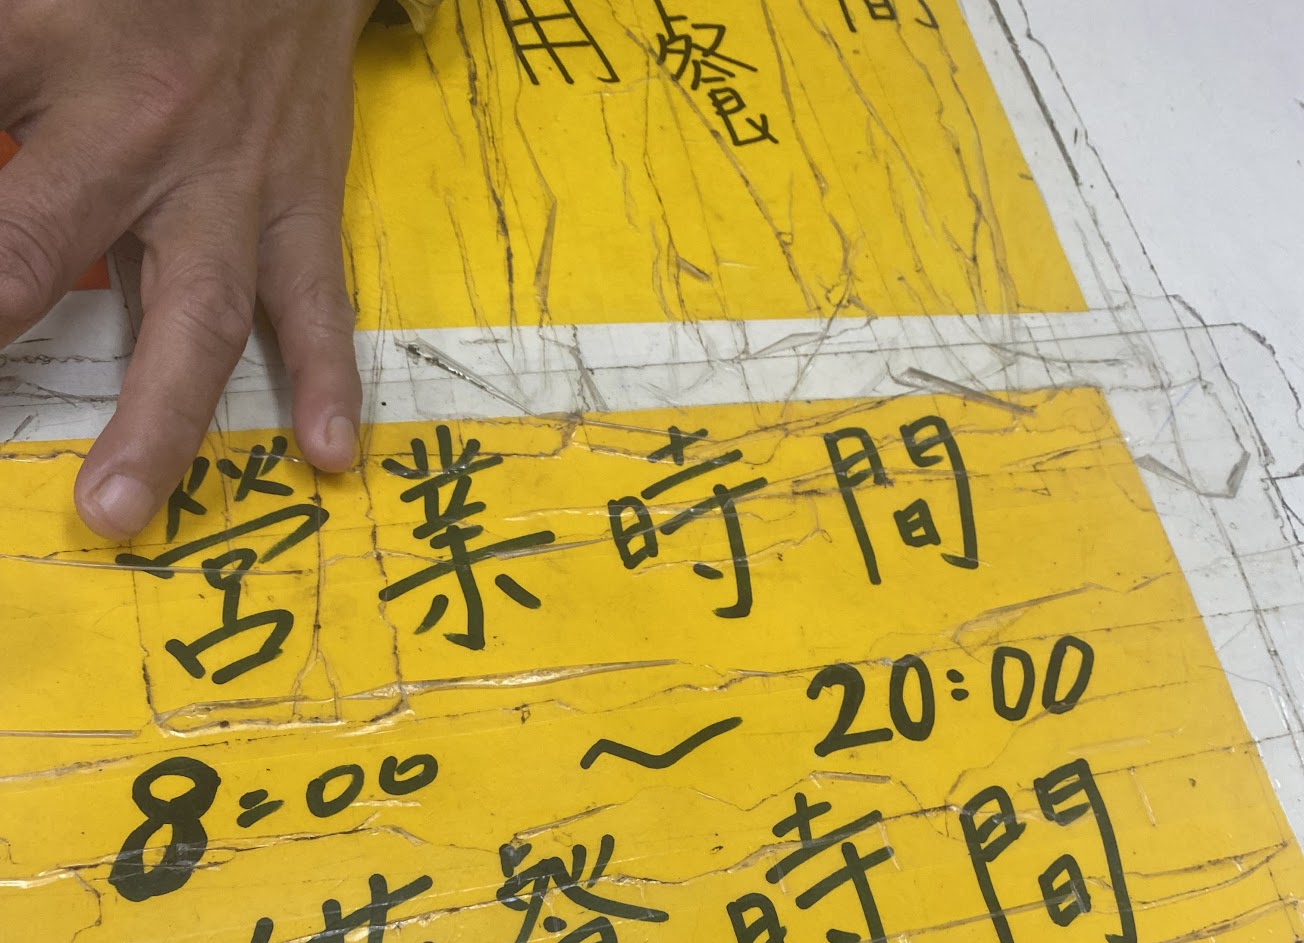 用餐 間
營業時間
8:00 ~ 20:00
供餐時間